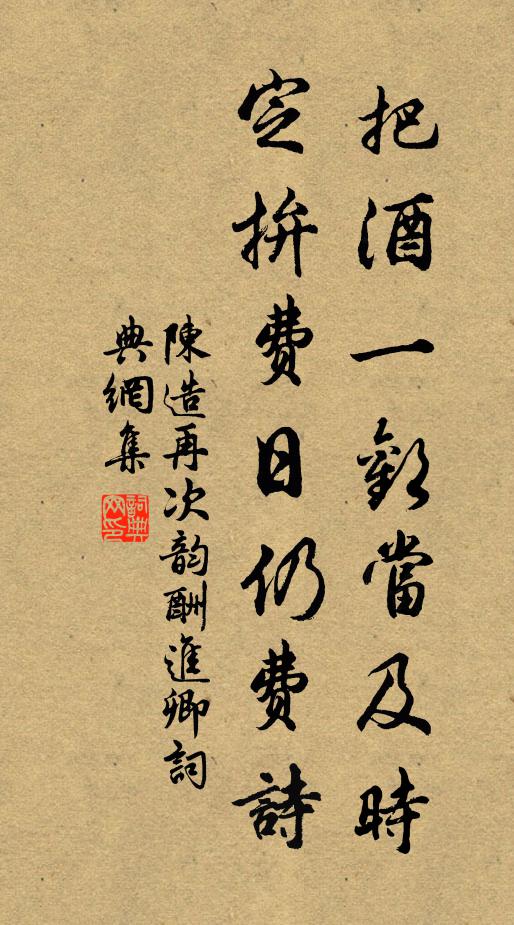 把酒一歡當及時
定拚費日仍費詩
陳造再次韵酬進卿詞
典網集
詞典網印